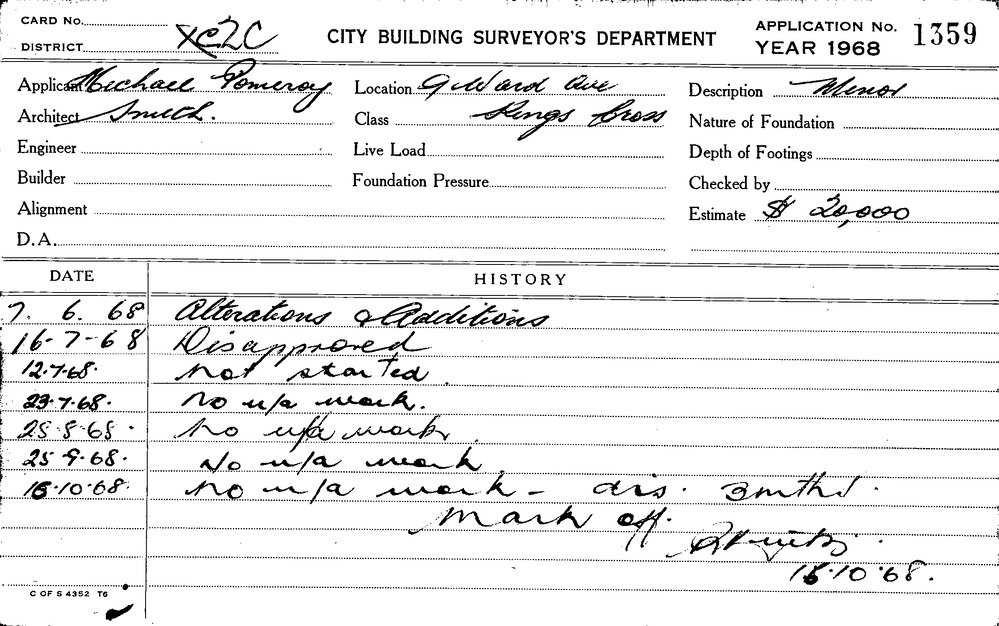 CARD No.
DISTRICT XC2C
CITY BUILDING SURVEYOR'S DEPARTMENT
APPLICATION No. 1359
YEAR 1968
Applicant Michael Pomeroy
Location 9 Ward Ave
Description Minor
Architect Smith.
Class Kings Cross
Nature of Foundation
Engineer
Live Load
Depth of Footings
Builder
Foundation Pressure
Checked by
Alignment
Estimate $ 20,000
D.A.
DATE
HISTORY
7. 6. 68 Alterations & Additions
16-7-68 Disapproved
12.7.68. Not started.
23.7.68. No u/a work.
25.8.68. No u/a work.
25.9.68. No u/a work.
15.10.68. No u/a work - dis. 3mths.
Mark off.
15.10.68.
C OF S 4352 T6